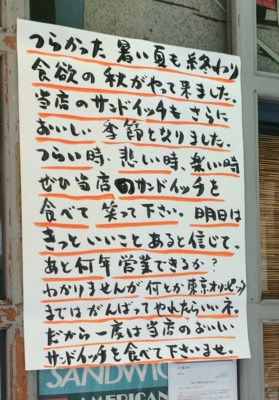 つらかった 暑い夏も終わり
食欲の秋がやって来ました。
当店のサンドイッチも さらに
おいしい 季節となりました。
つらい時、悲しい時、楽しい時
ぜひ当店のサンドイッチを
食べて 笑って下さい。明日は
きっといいことあると信じて。
あと何年営業できるか?
わかりませんが何とか東京オリンピック
まではがんばってやれたらいいネ。
だから一度は当店のおいしい
サンドイッチを食べて下さいませ。
SANDWICH
AMERICAN